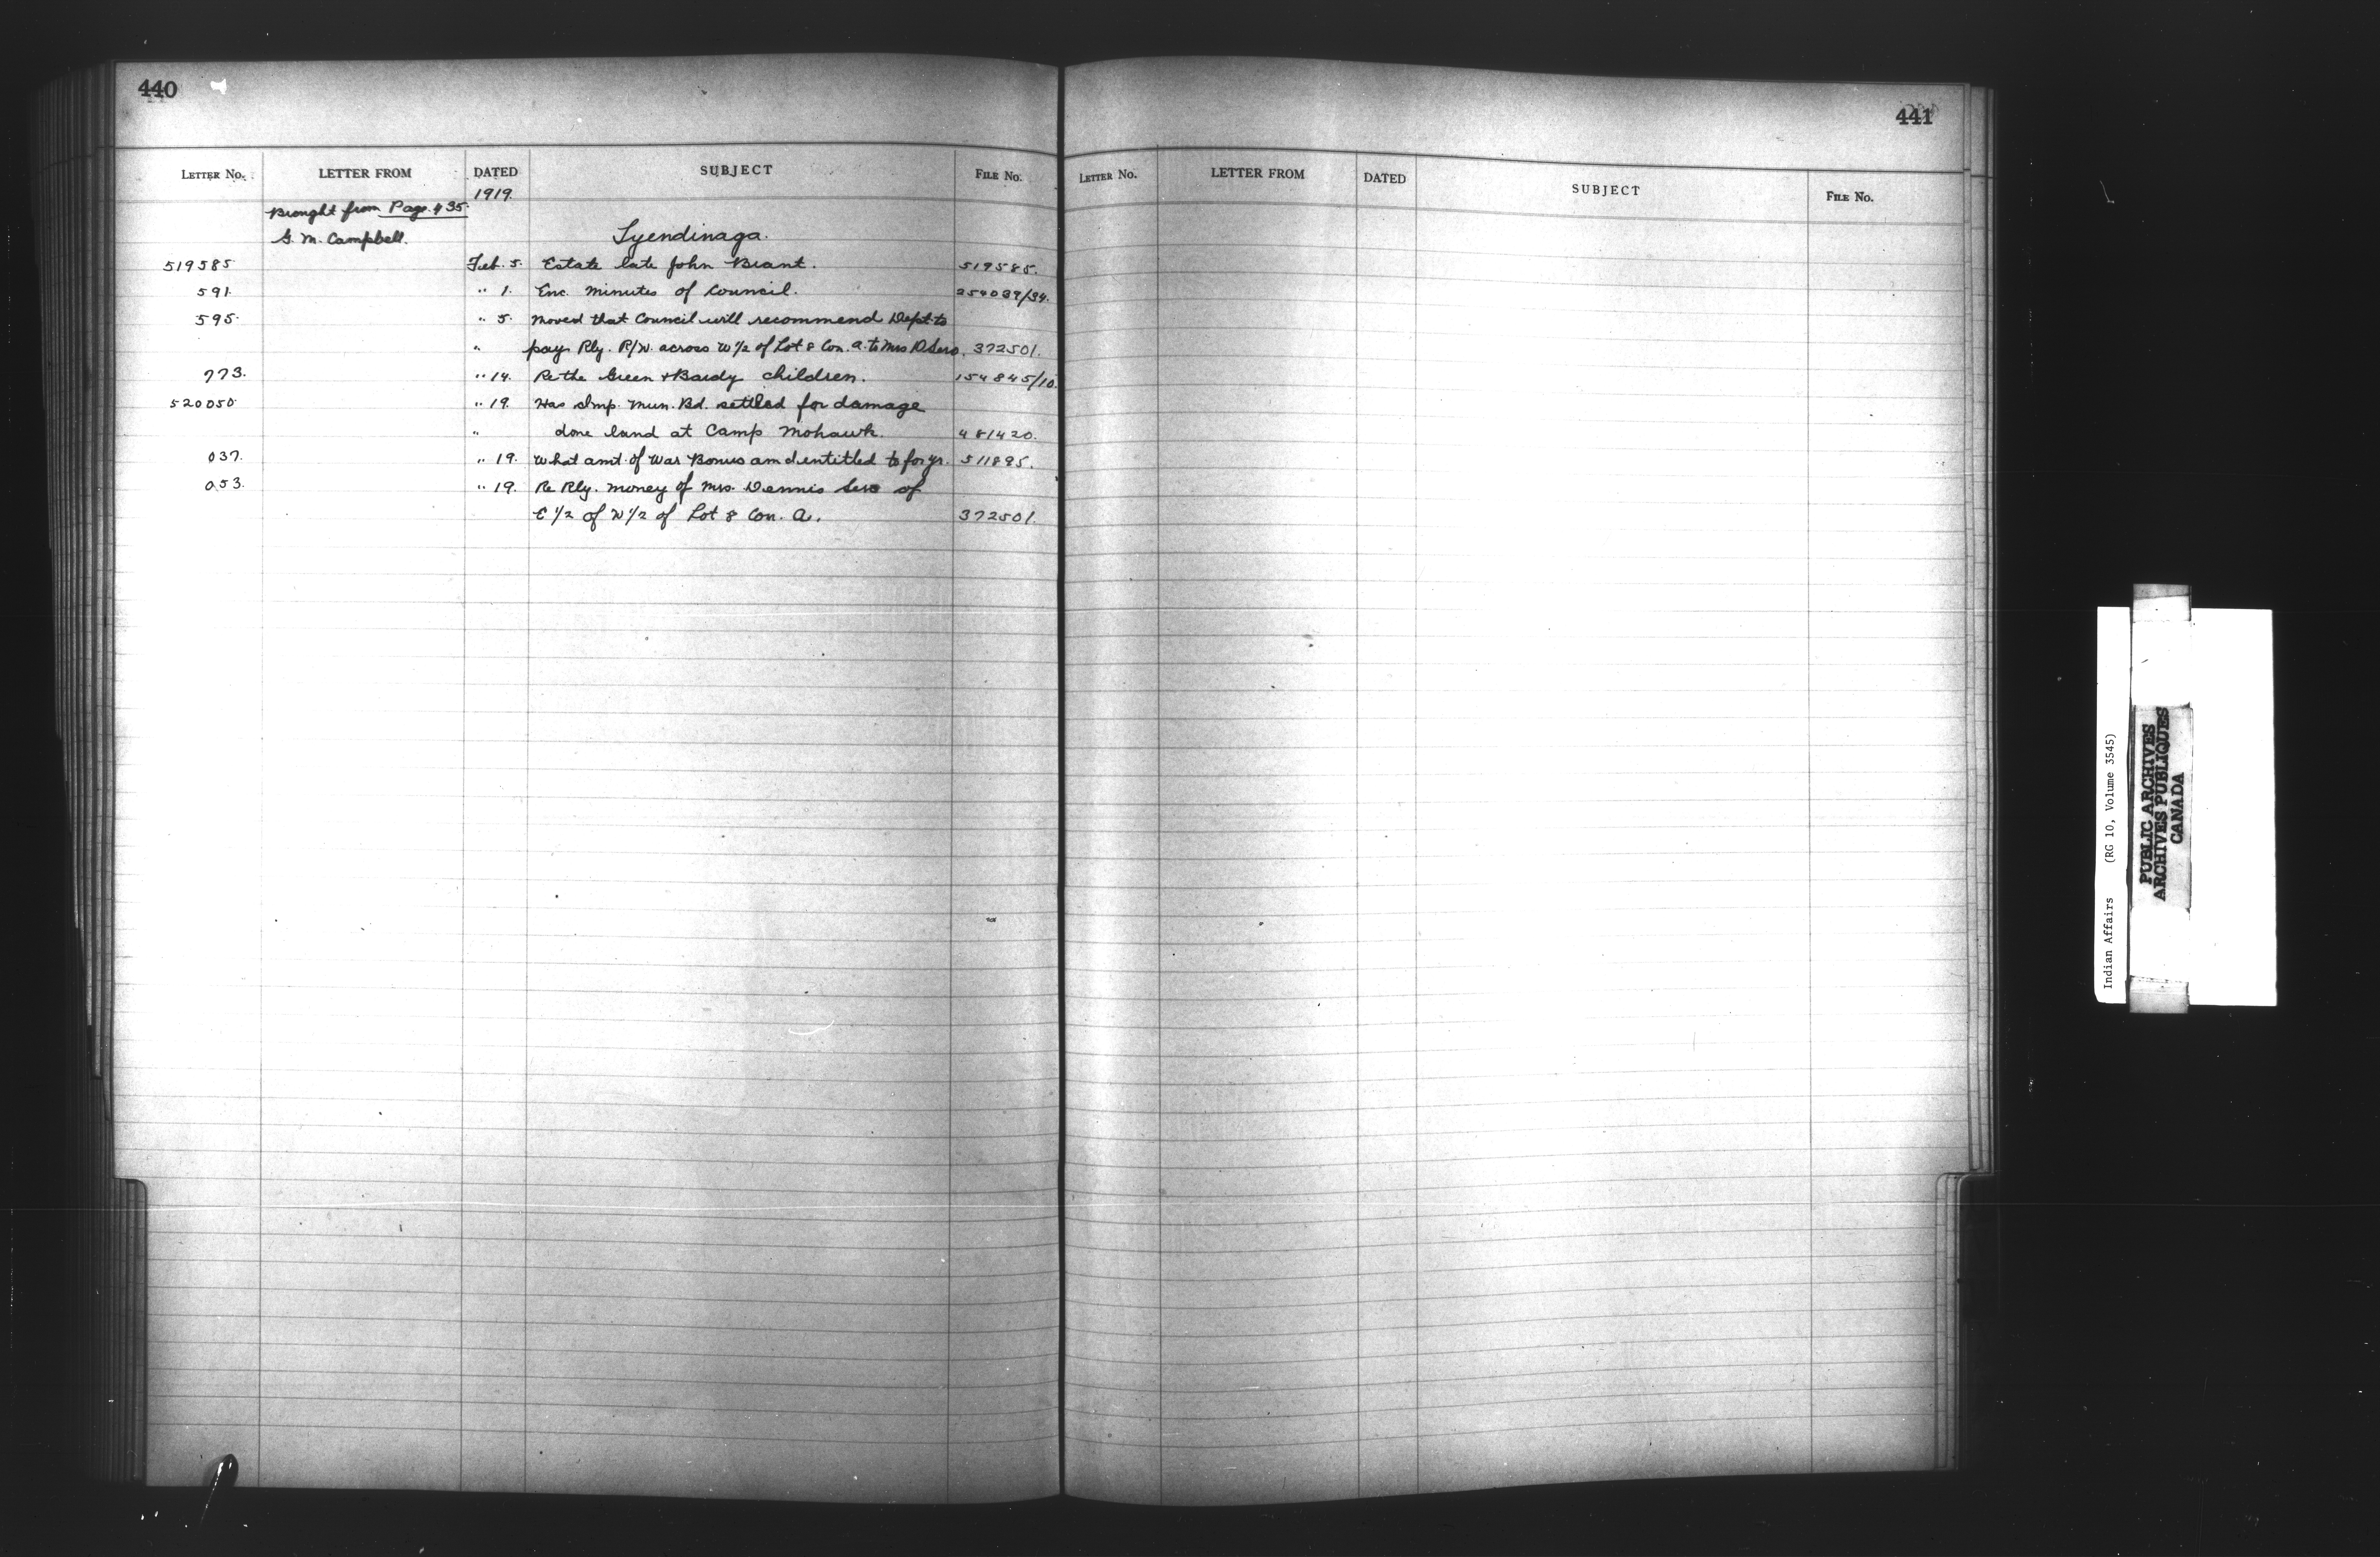 440
LETTER No. LETTER FROM DATED SUBJECT FILE No.
1919.
Brought from Page 435.
G. M. Campbell. Tyendinaga.
519585 Feb. 5. Estate late John Brant. 519585.
591. " 1. Enc. minutes of Council. 254039/34.
595. " 5. Moved that Council will recommend Dept. to
" pay Rly. R/W. across W 1/2 of Lot 8 Con. A. to Mrs D. Sero. 372501.
773. " 14. Re the Green & Bardy children. 154845/10.
520050 " 19. Has Imp. Mun. Bd. settled for damage
" done land at Camp Mohawk. 481420.
037. " 19. What amt. of War Bonus am I entitled to for yr. 511895.
053. " 19. Re Rly. money of Mrs. Dennis Sero of
E 1/2 of W 1/2 of Lot 8 Con. A. 372501.
441
LETTER No. LETTER FROM DATED SUBJECT FILE No.
Indian Affairs (RG 10, Volume 3545)
PUBLIC ARCHIVES
ARCHIVES PUBLIQUES
CANADA